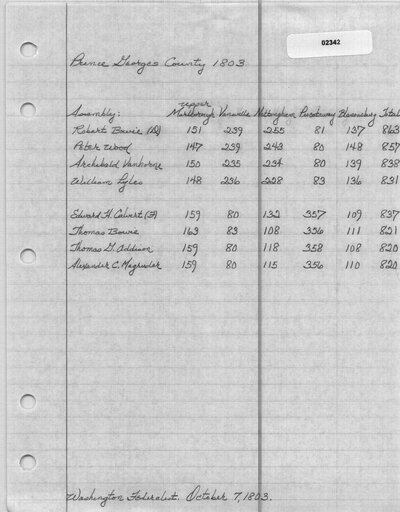 02342
Prince Georges County 1803
Assembly: Upper Marlborough Vansville Nottingham Piscataway Bladensburg Total
Robert Bowie (R) 151 239 255 81 137 863
Peter Wood 147 239 243 80 148 857
Archibald Vanhorne 150 235 234 80 139 838
William Lyles 148 236 228 83 136 831
Edward H. Calvert (F) 159 80 132 357 109 837
Thomas Bowie 163 83 108 356 111 821
Thomas G. Addison 159 80 118 358 108 820
Alexander C. Magruder 159 80 115 356 110 820
Washington Federalist. October 7, 1803.